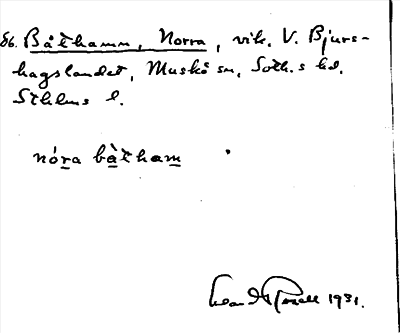 86. Båthamn, Norra, vik, V. Bjurs-
hagslandet, Muskö sn, Soth.s hd.
Sthlms l.
nóra bàtham
1931.